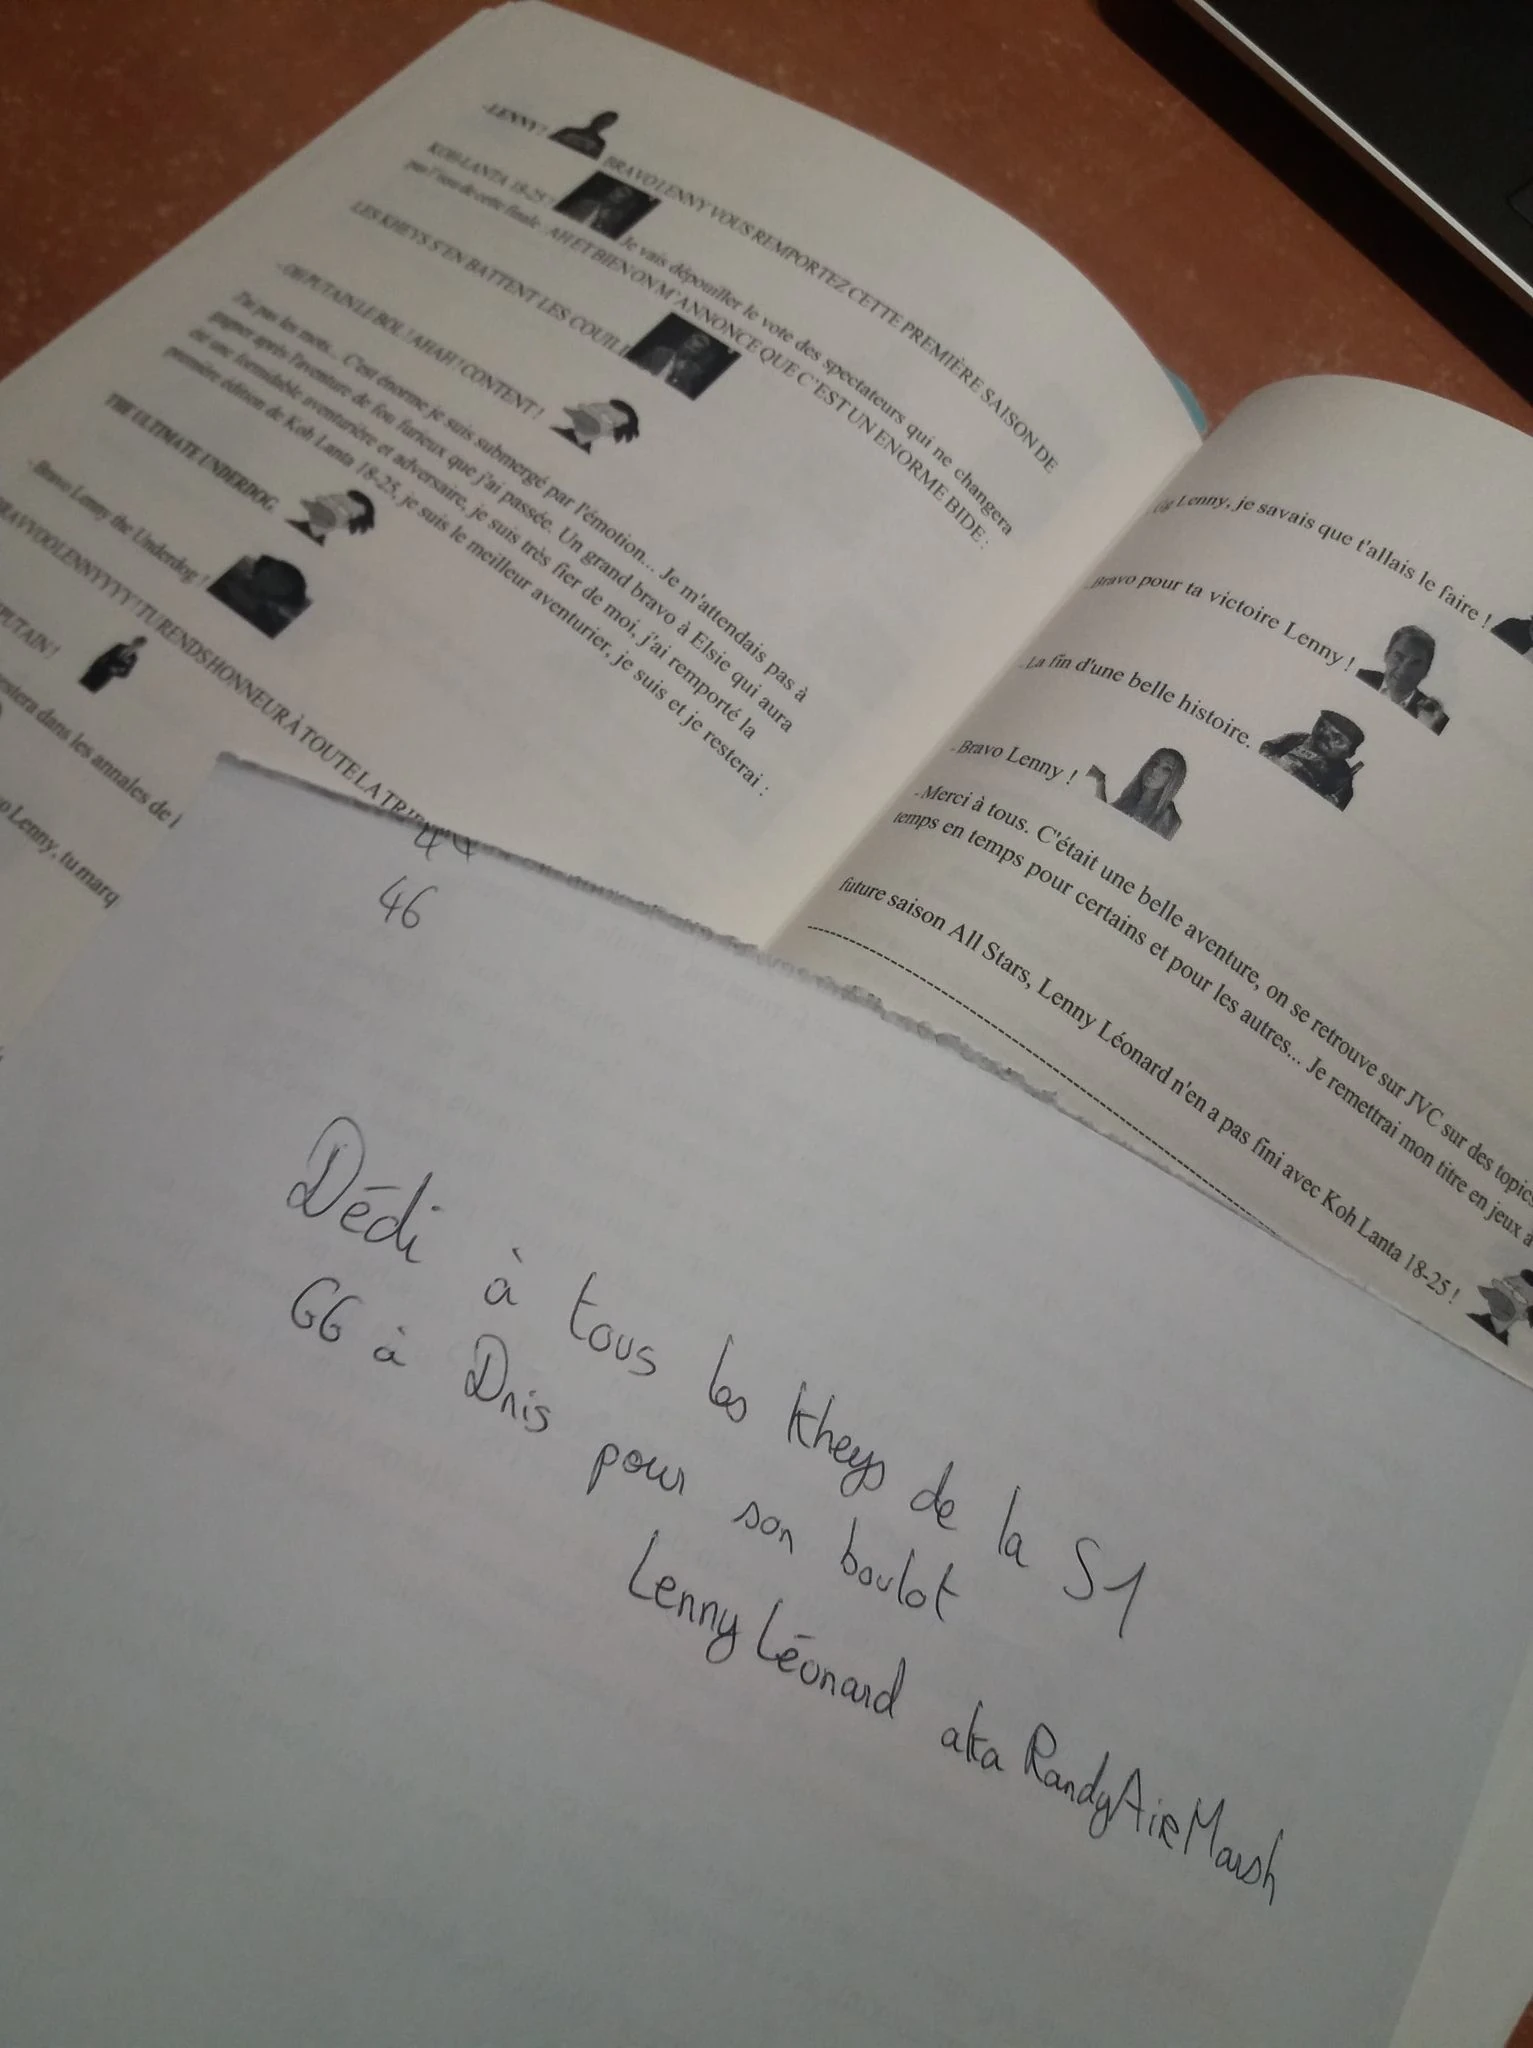 -LENNY ?
BRAVO LENNY VOUS REMPORTEZ CETTE PREMIÈRE SAISON DE
KOH-LANTA 18-25 ! Je vais dépouiller le vote des spectateurs qui ne changera
pas l'issu de cette finale - AH ET BIEN ON M'ANNONCE QUE C'EST UN ENORME BIDE :
LES KHEYS S'EN BATTENT LES COUILL
- OH PUTAIN LE BOL ! AHAH ! CONTENT !
J'ai pas les mots... C'est énorme je suis submergé par l'émotion... Je m'attendais pas à
gagner après l'aventure de fou furieux que j'ai passée. Un grand bravo à Elsie qui aura
été une formidable aventurière et adversaire, je suis très fier de moi, j'ai remporté la
première édition de Koh Lanta 18-25, je suis le meilleur aventurier, je suis et je resterai :
THE ULTIMATE UNDERDOG
- Bravo Lenny the Underdog !
RAVVOOLENNYYYY ! TU RENDS HONNEUR À TOUTE LA
PUTAIN !
restera dans les annales de
o Lenny, tu marq
Lenny, je savais que t'allais le faire !
- Bravo pour ta victoire Lenny !
- La fin d'une belle histoire.
- Bravo Lenny !
- Merci à tous. C'était une belle aventure, on se retrouve sur JVC sur des topics
temps en temps pour certains et pour les autres... Je remettrai mon titre en jeux a
future saison All Stars, Lenny Léonard n'en a pas fini avec Koh Lanta 18-25 !
44
46
Dédi à tous les kheys de la S1
GG à Dnis pour son boulot
Lenny Léonard aka RandyAirMarsh